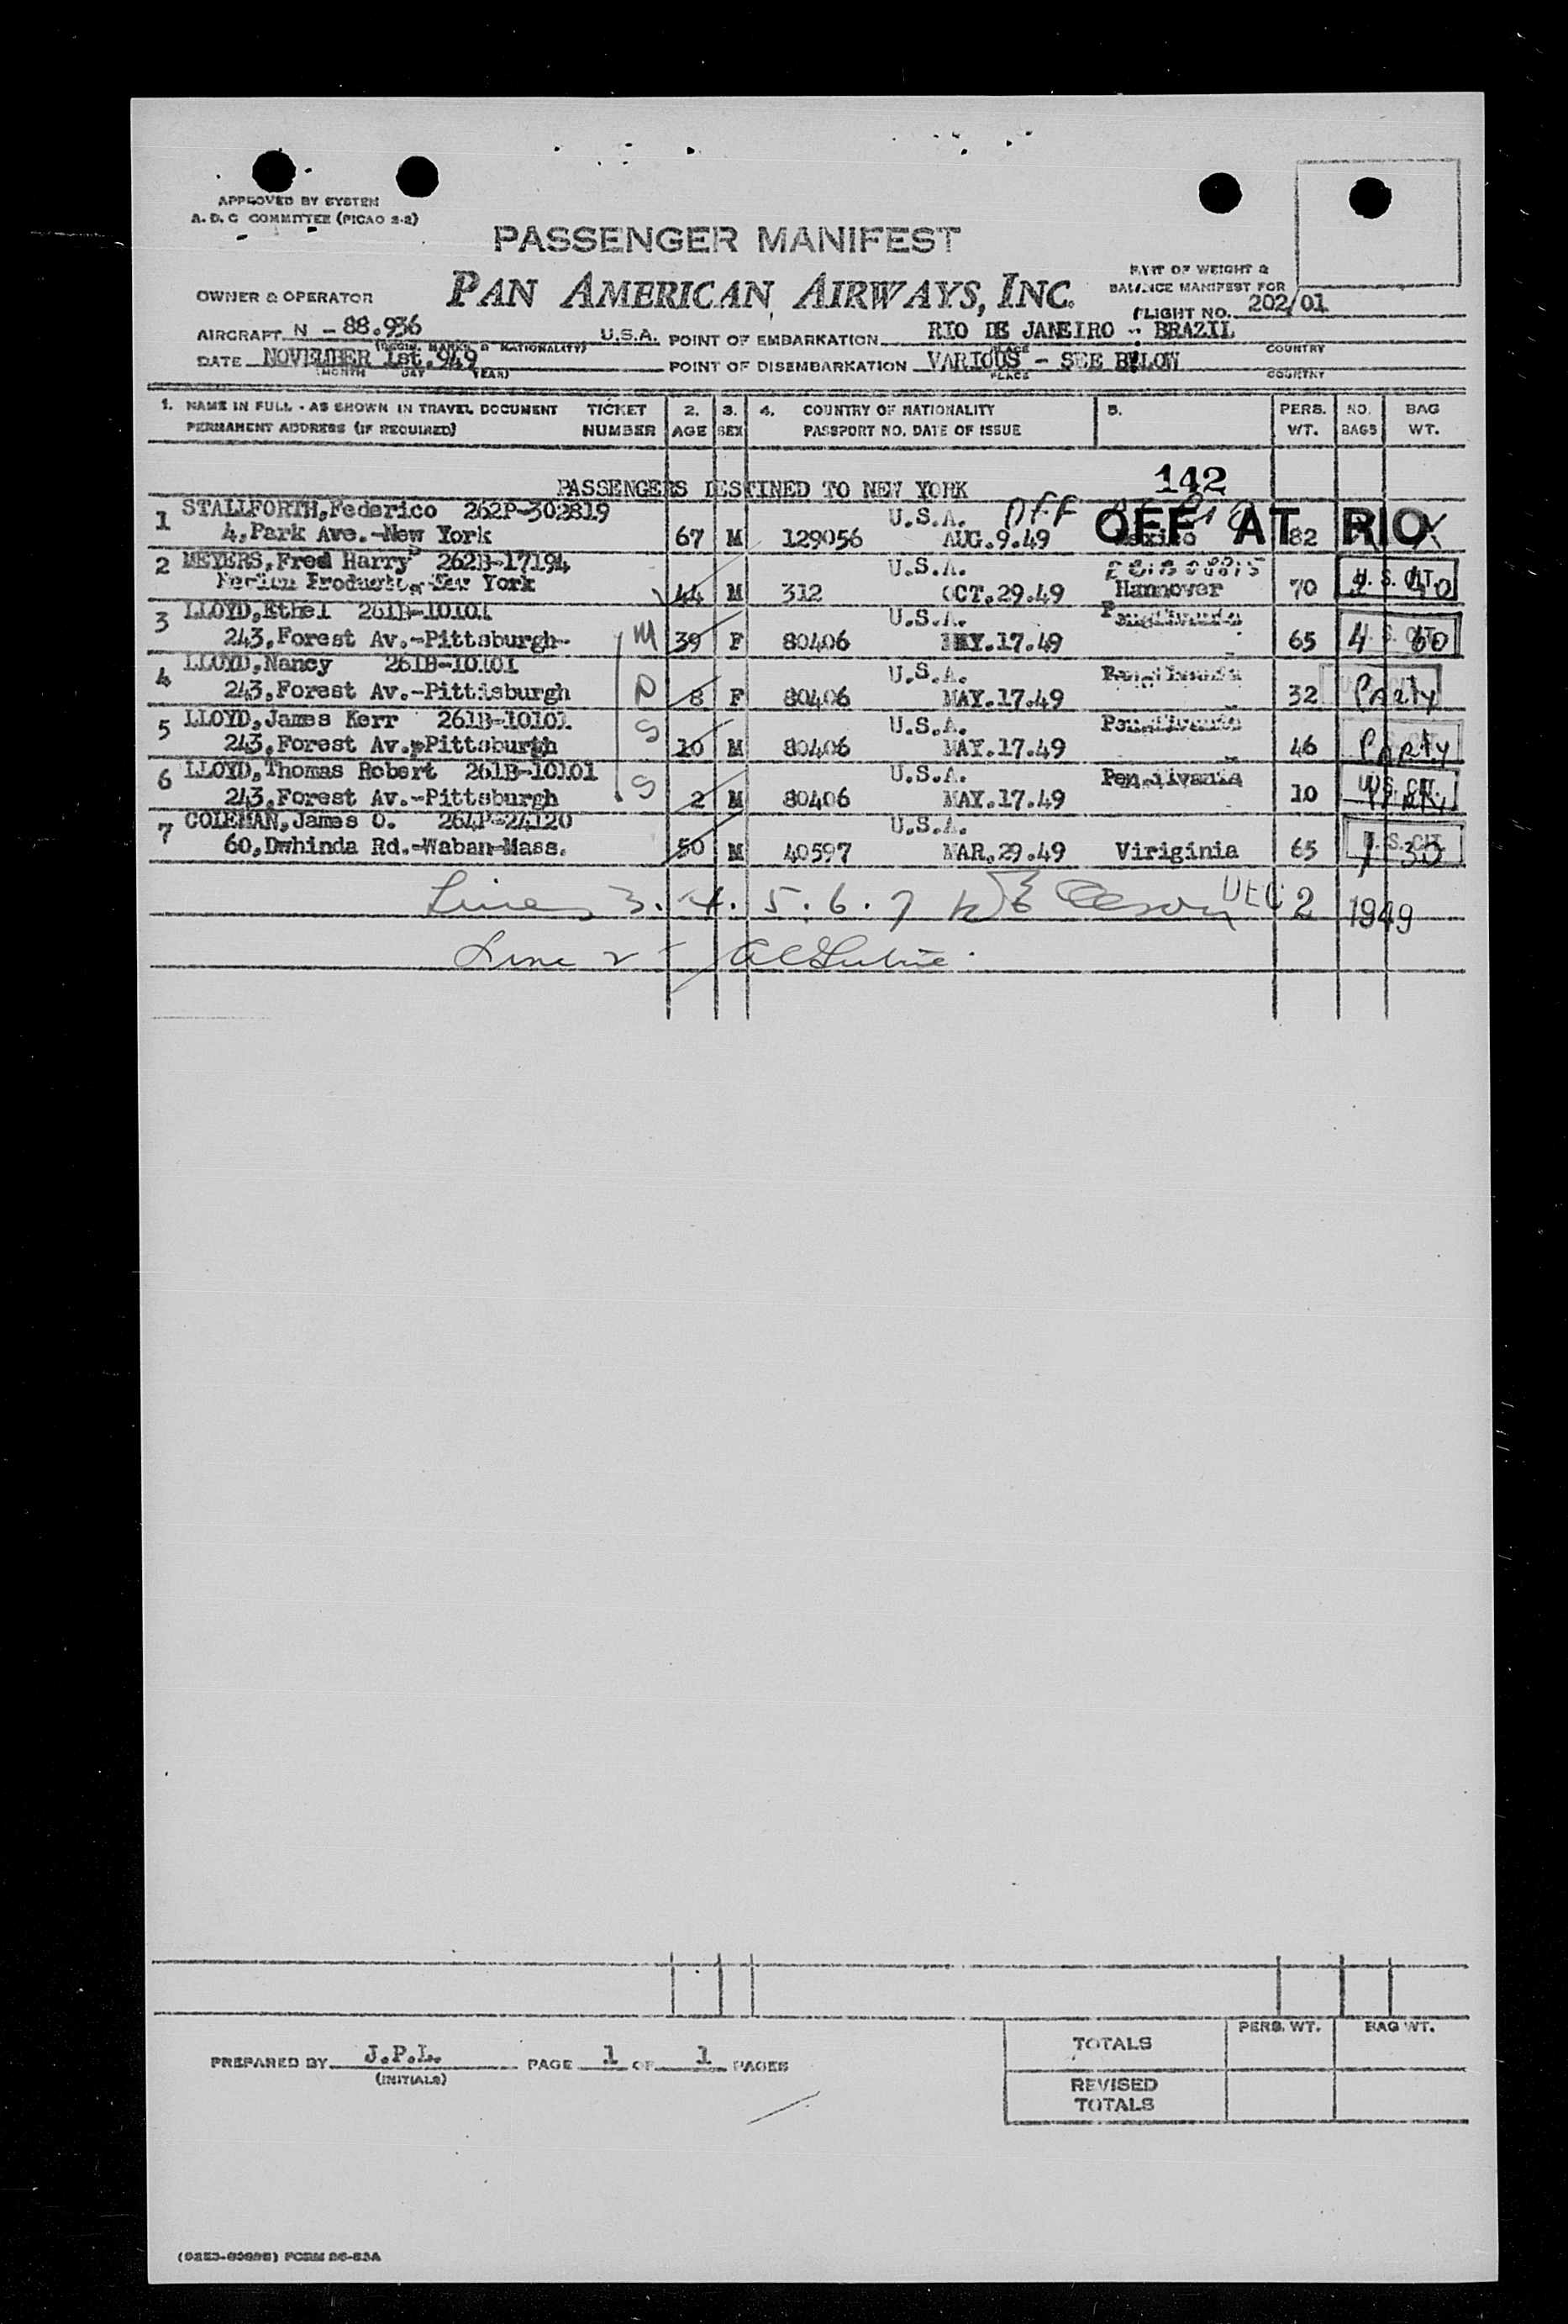 APPROVED BY SYSTEM
A. D. C COMMITTEE (PICAO 2-2)
PASSENGER MANIFEST
PAN AMERICAN AIRWAYS, INC.
PART OF WEIGHT &
BALANCE MANIFEST FOR
FLIGHT NO. 202/01
OWNER & OPERATOR
AIRCRAFT N - 88.936 U.S.A. POINT OF EMBARKATION RIO DE JANEIRO - BRAZIL
(REGIS. MARKS & NATIONALITY) PLACE COUNTRY
DATE NOVEMBER 1st.949 POINT OF DISEMBARKATION VARIOUS - SEE BELOW
(MONTH DAY YEAR) PLACE COUNTRY
1. NAME IN FULL - AS SHOWN IN TRAVEL DOCUMENT TICKET 2. 3. 4. COUNTRY OF NATIONALITY 5. PERS. NO. BAG
PERMANENT ADDRESS (IF REQUIRED) NUMBER AGE SEX PASSPORT NO. DATE OF ISSUE WT. BAGS WT.
142
PASSENGERS DESTINED TO NEW YORK
1 STALLFORTH,Federico 262P-302819 U.S.A. OFF OFF AT RIO
4,Park Ave.-New York 67 M 129056 AUG.9.49 Mexico 82
2 MEYERS,Fred Harry 262B-17194 U.S.A.
New York 44 M 312 OCT.29.49 Hannover 70 U.S. CIT. 40
3 LLOYD,Ethel 261B-10101 U.S.A.
243,Forest Av.-Pittsburgh- M 39 F 80406 MAY.17.49 65 4 U.S. CIT. 60
4 LLOYD,Nancy 261B-10101 U.S.A.
243,Forest Av.-Pittisburgh D 8 F 80406 MAY.17.49 32 Party
5 LLOYD,James Kerr 261B-10101 U.S.A.
243,Forest Av.,Pittsburgh S 10 M 80406 MAY.17.49 46 Party
6 LLOYD,Thomas Robert 261B-10101 U.S.A.
243,Forest Av.-Pittsburgh S 2 M 80406 MAY.17.49 10 U.S. CIT. Party
7 COLEMAN,James O. 264P-24120 U.S.A.
60,Dwhinda Rd.-Waban-Mass. 50 M 40597 MAR.29.49 Viriginia 65 1 U.S. CIT. 30
Lines 3. 4. 5. 6. 7 DEC 2 1949
Line 2
PREPARED BY J.P.L. PAGE 1 OF 1 PAGES
(INITIALS)
PERS. WT. BAG WT.
TOTALS
REVISED
TOTALS